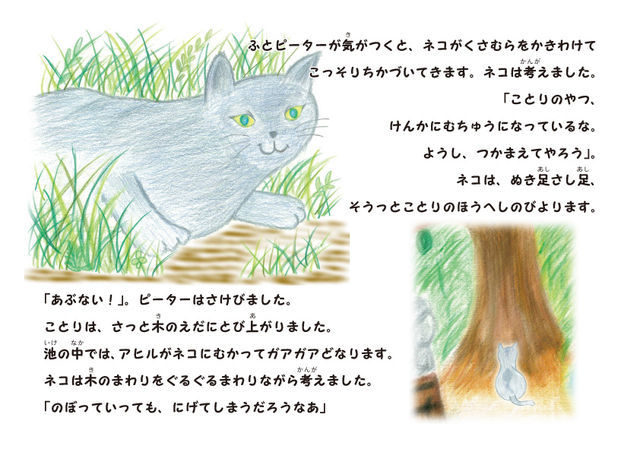 ふとピーターが気がつくと、ネコがくさむらをかきわけて
こっそりちかづいてきます。ネコは考えました。
「ことりのやつ、
けんかにむちゅうになっているな。
ようし、つかまえてやろう」。
ネコは、ぬき足さし足、
そうっとことりのほうへしのびよります。
「あぶない！」。ピーターはさけびました。
ことりは、さっと木のえだにとび上がりました。
池の中では、アヒルがネコにむかってガアガアどなります。
ネコは木のまわりをぐるぐるまわりながら考えました。
「のぼっていっても、にげてしまうだろうなあ」